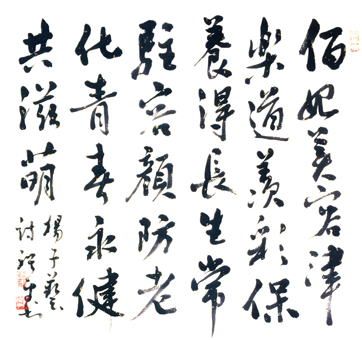 佰妃美容津
楽道羨彩保
養得長生常
駐容顏防老
化青春永健
共滋萌
楊子藝
詩